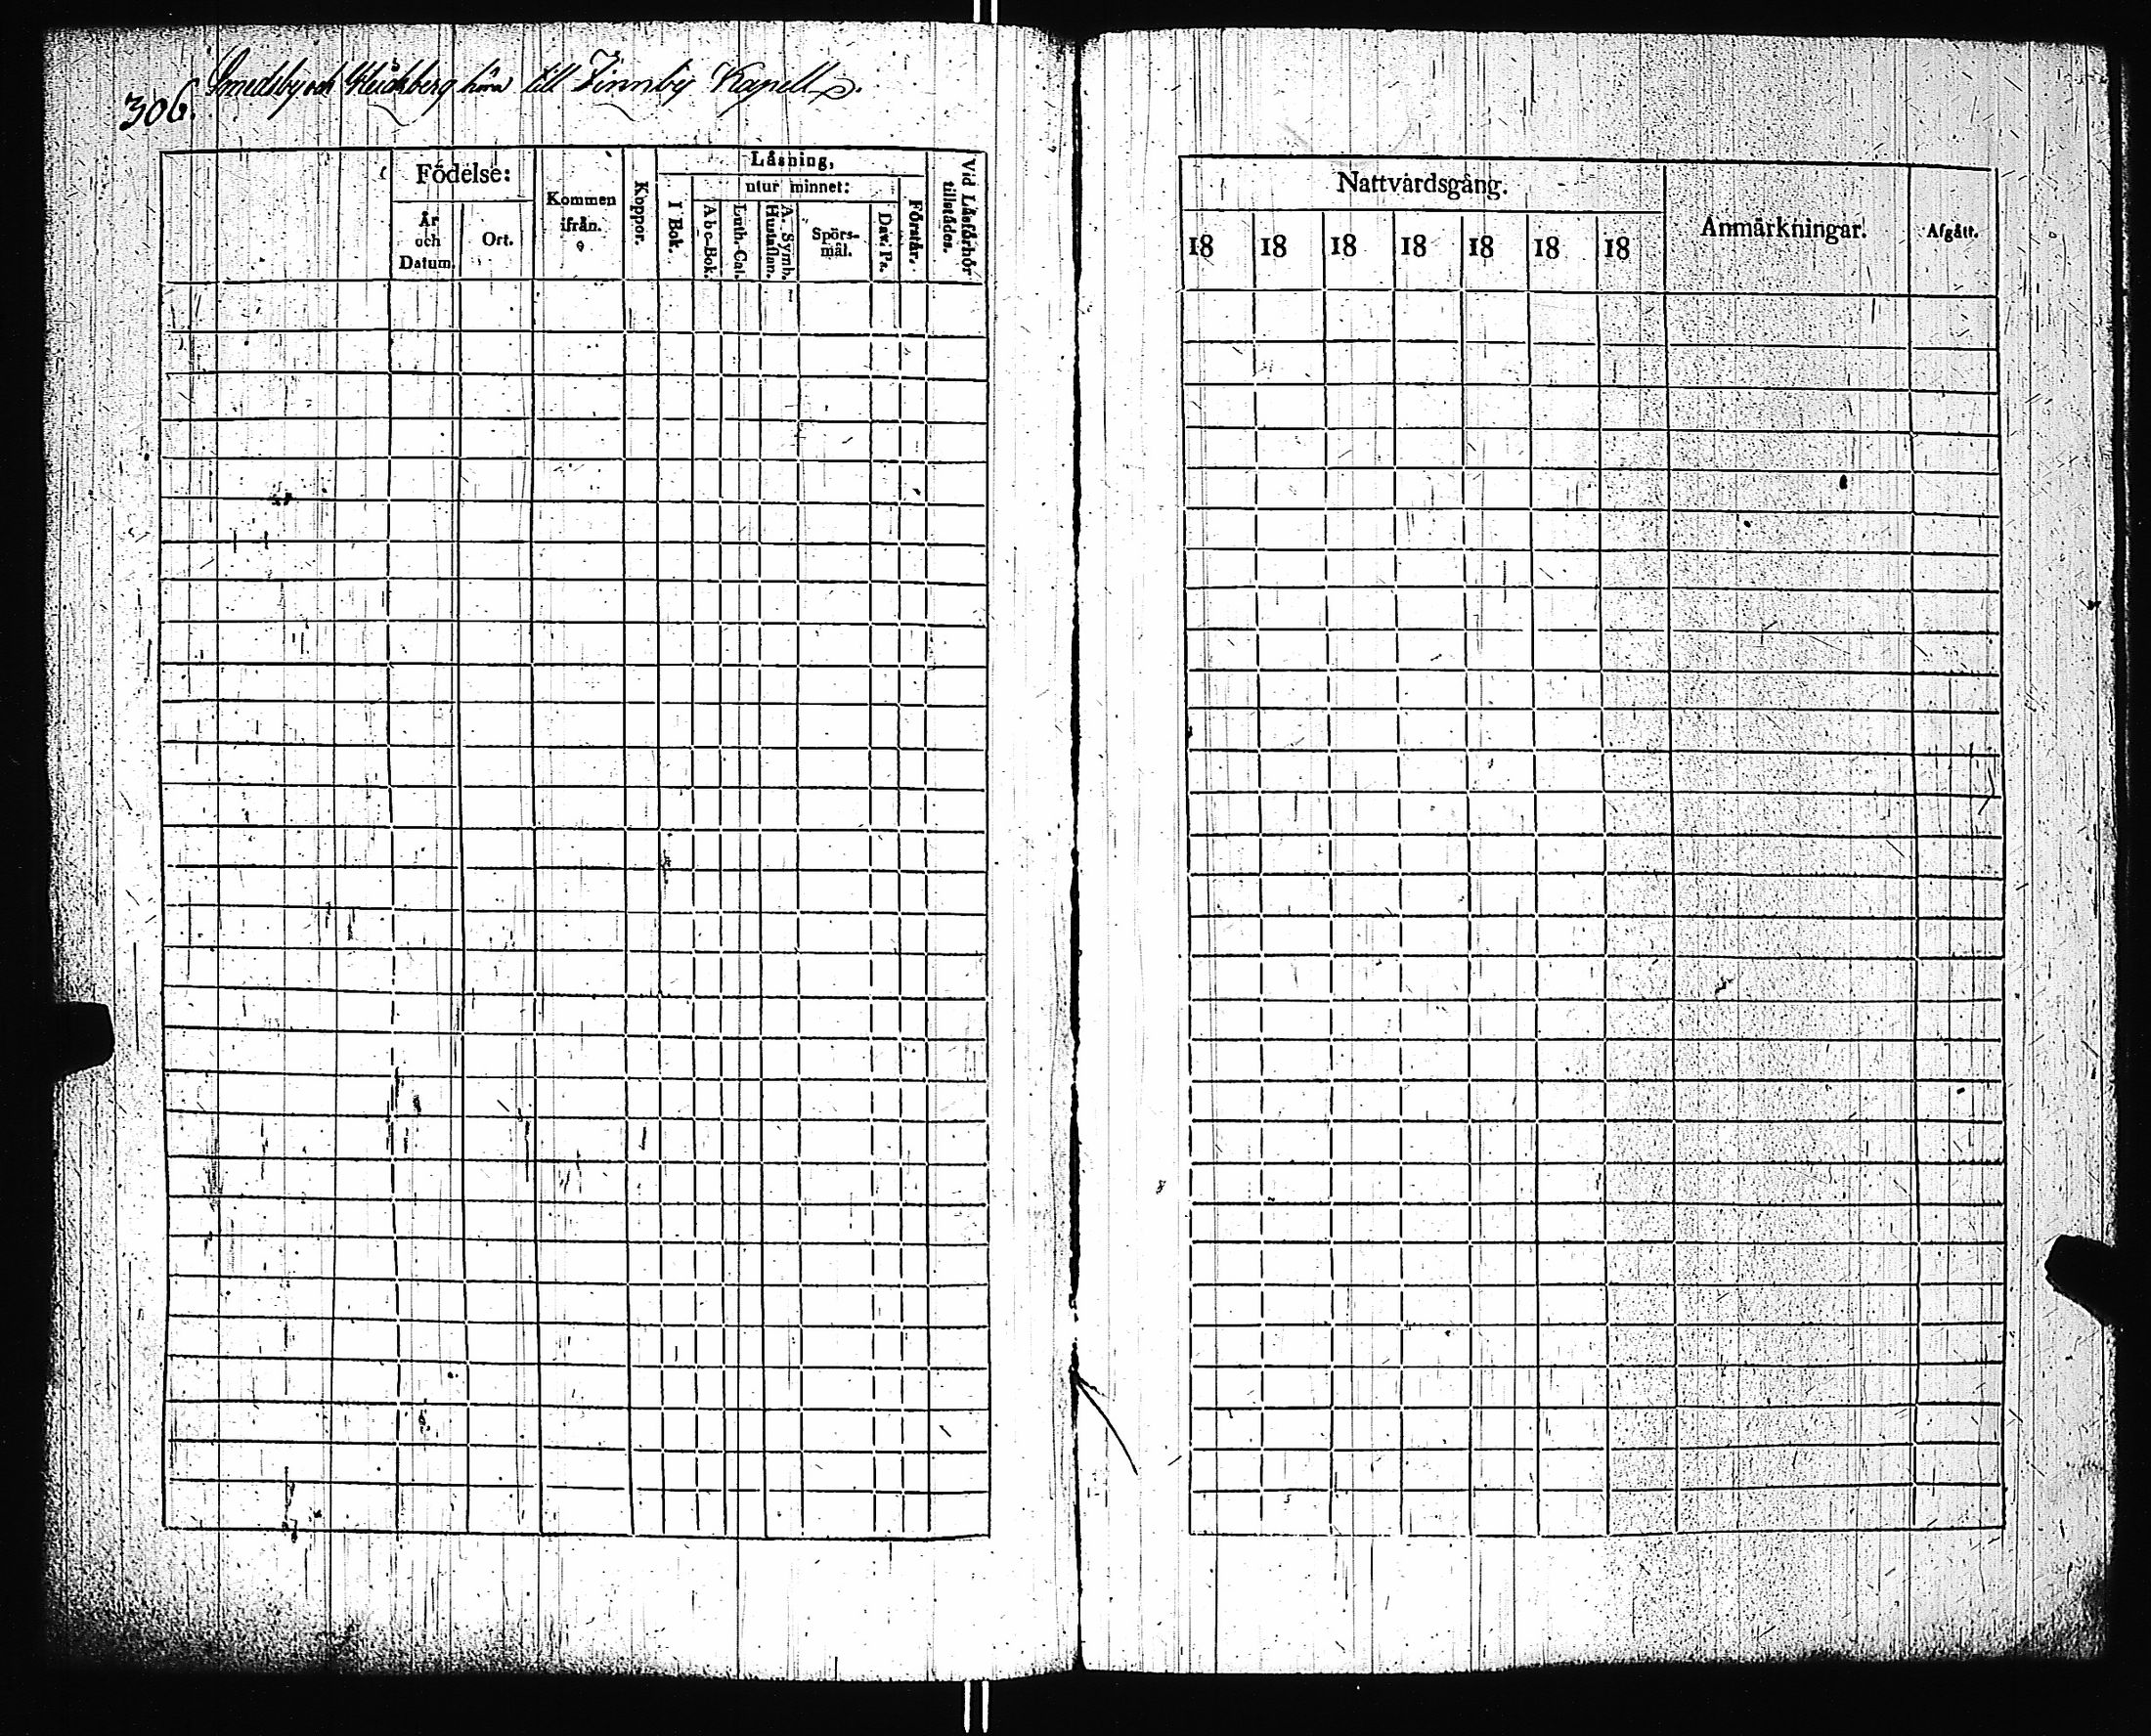 306. Smedsby och höra till Finnby Kapell.
Födelse:
År och Datum.
Ort.
Kommen ifrån.
Koppor.
Läsning,
utur minnet:
I Bok.
Abc-Bok.
Luth. Cat.
A. Symb. Hustaflan.
Spörsmål.
Dav. Ps.
Förstår.
Vid Läsförhör tillstädes.
Nattvardsgång.
18 18 18 18 18 18 18
Anmärkningar.
Afgått.